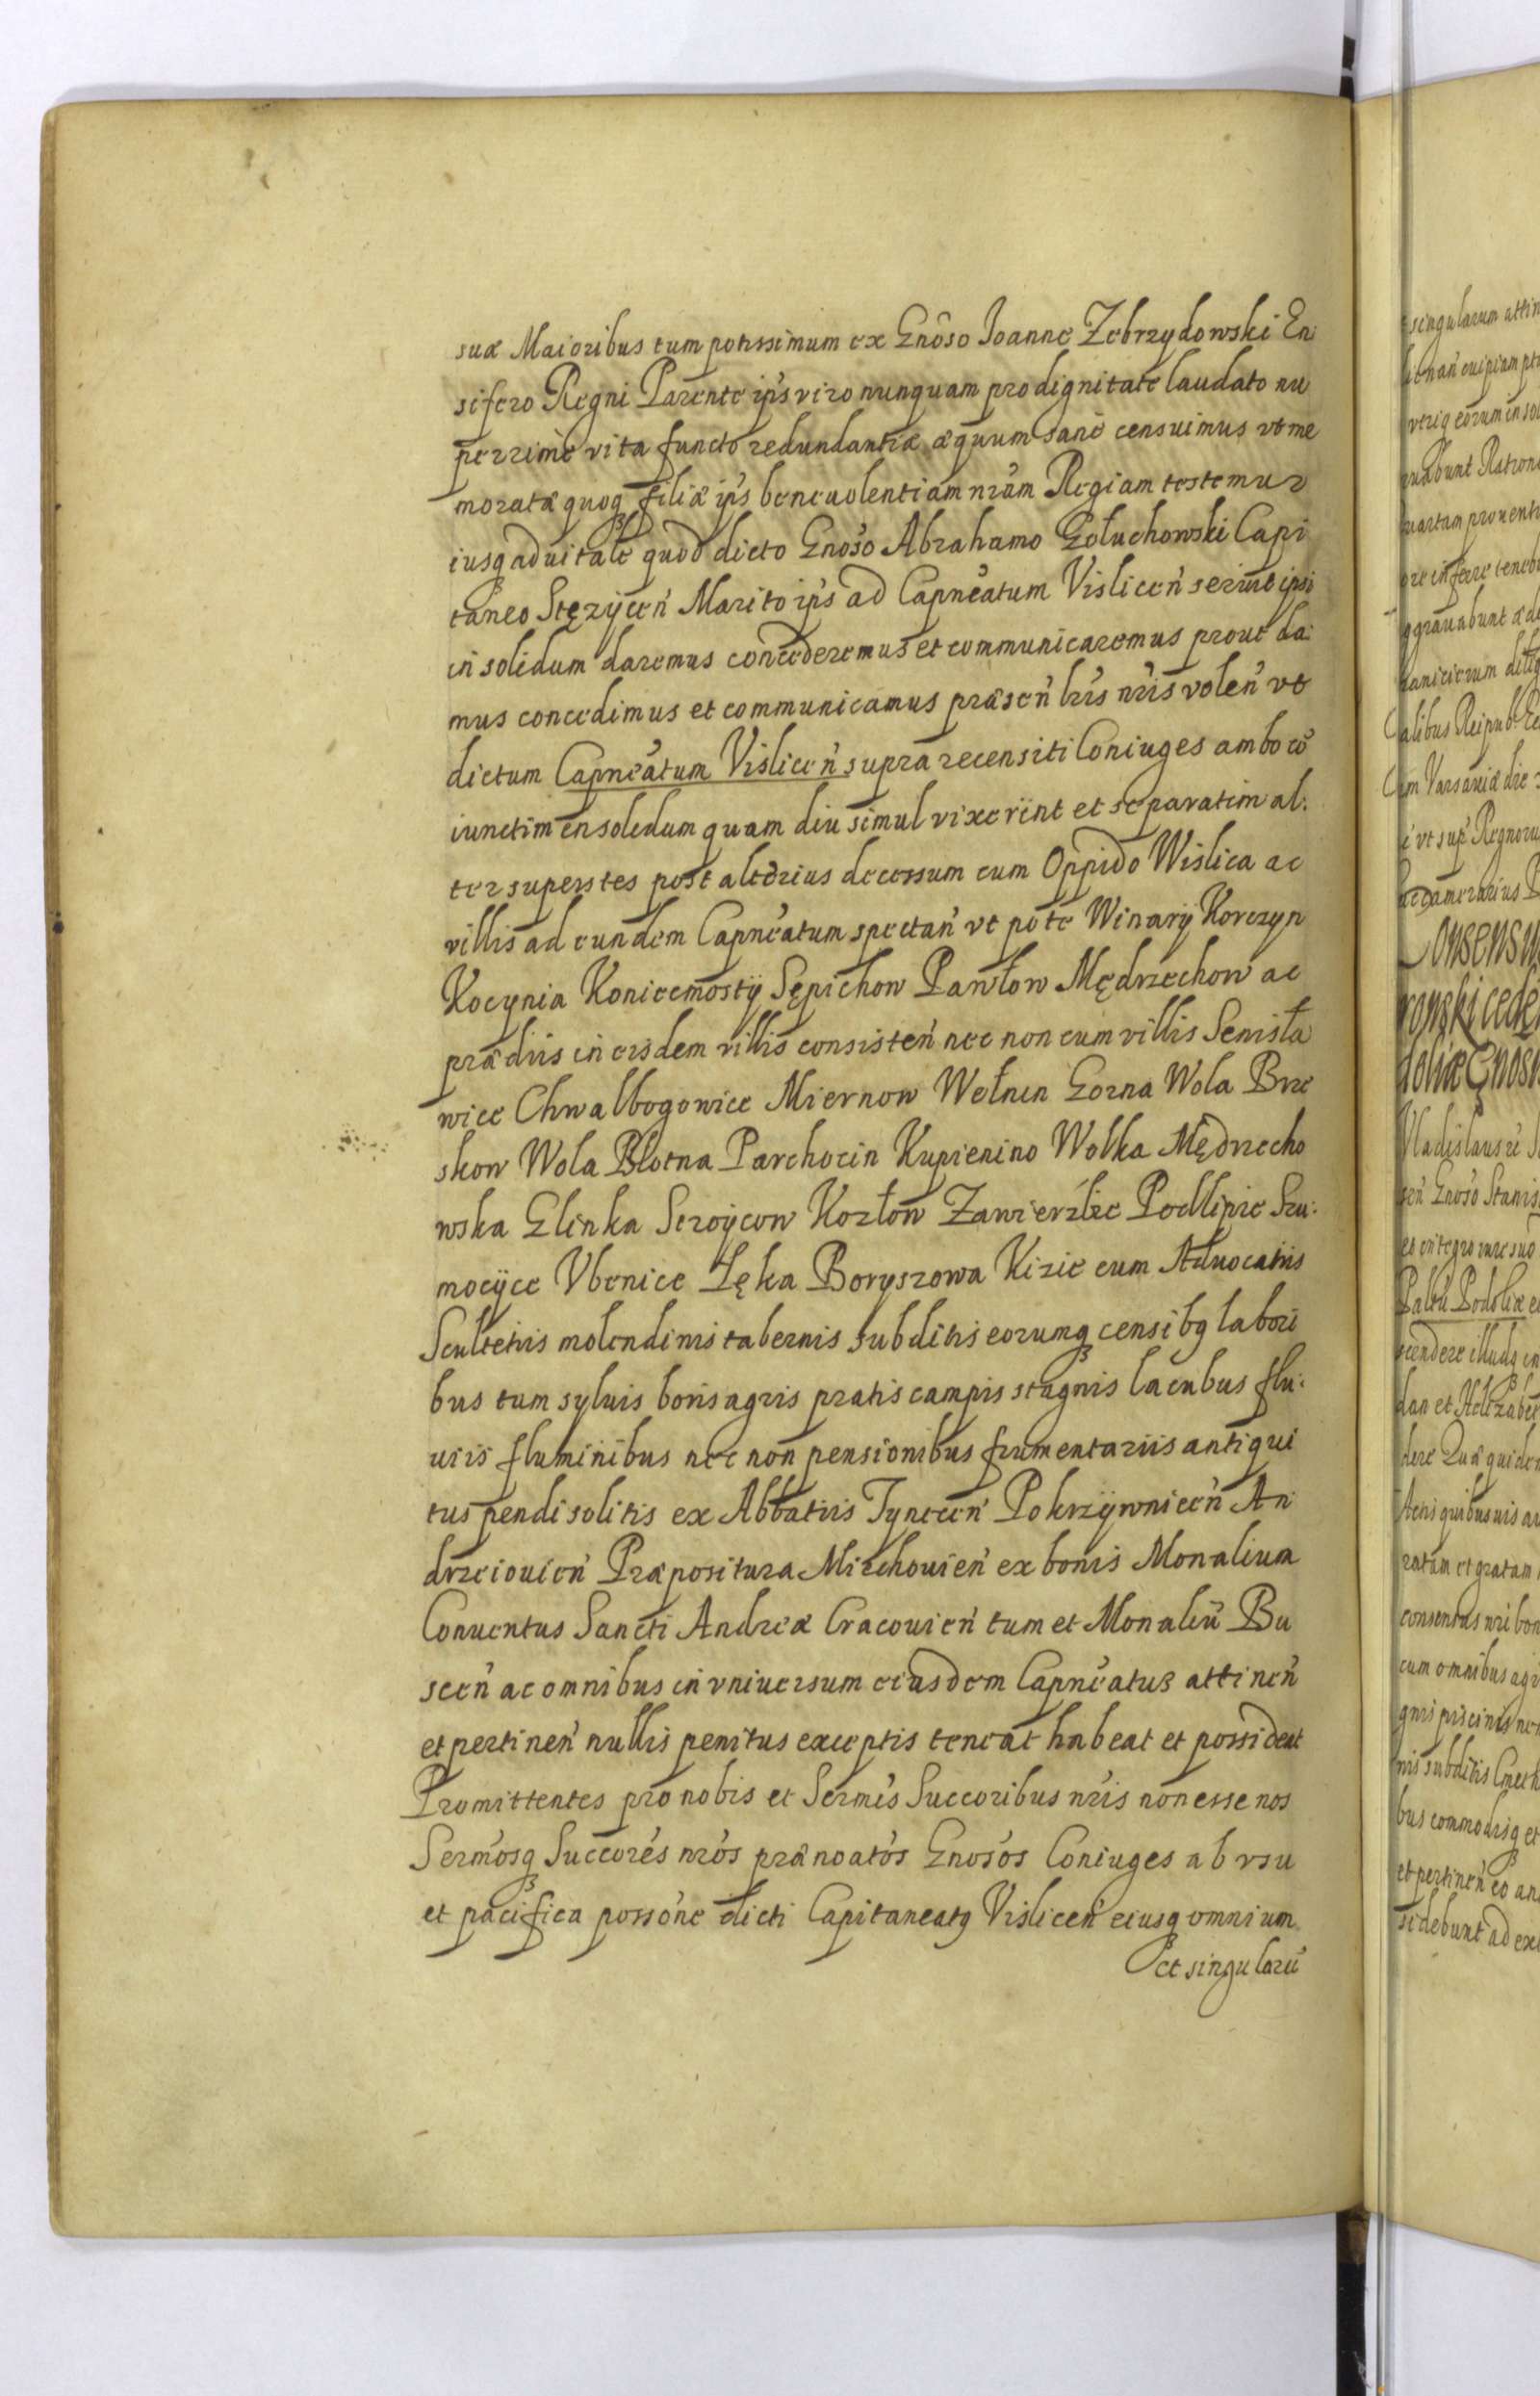 suæ Maioribus tum potissimum ex Gnõso Joanne Zebrzydowski En
sifero Regni Parente ip's viro nunquam pro dignitate laudato nu
perrimè vita functo redundantiæ æquum sanè censuimus vt me
moratæ quoq filiæ ip's beneuolentiam nrãm Regiam testemur
iusq aduitale quod dicto Gnoso Abrahamo Gołuchowski Capi
taneo Stęzÿcen Marito ip's ad Capneatum Vislicen seruit ipsi
in solidum daremus concederemus et communicaremus prout da:
mus concedimus et communicamus præsen lris nris volen vt
dictum Capneatum Vislicen supra recensiti Coniuges ambo cõ
iunctim in solidum quam diu simul vixerint et separatim al:
ter superstes post alterius decessum cum Oppido Wislica ac
villis ad eundem Capneatum spectan vt pote Winarÿ Korczyn
Kocynia Koniecmostÿ Sępichow Pawłow Mędrzechow ac
prædiis in eisdem villis consisten nec non cum villis Senisła
wice Chwalbogowice Miernow Wełnin Gorna Wola Brze
skow Wola Błotna Parchocin Kupienino Wolka Mędrzecho
wska Glinka Sczoÿcow Kozłow Zawierzbie Podlipie Szu:
mocÿce Vbenice Łęka Boryszowa Kizie cum Aduocatiis
Scultetiis molendinis tabernis subditis eorumq censibq labori
bus tum syluis boris agris pratis campis stagnis lacubus flu:
uiis fluminibus nec non pensionibus frumentariis antiqui
tus pendi solitis ex Abbatiis Tynecen Pokrzÿwnicen An
drzeiouien Præpositura Miechouien ex bonis Monalium
Conuentus Sancti Andreæ Cracouien tum et Monaliũ Bu
scen ac omnibus in vniuersum eiusdem Capneatus attinen
et pertinen nullis penitus exceptis teneat habeat et possideat
Promittentes pro nobis et Sermis Succoribus nris non esse nos
Sermosq Succores nros prænoatos Gnosos Coniuges ab vsu
et pacifica possone dicti Capitaneatq Vislicen eiusq omnium
et singularũ
singularum attin
verig eorum in sol
quabunt Rationi
Reipub
Varsauiæ die
Regnoru
onsensu
rowski cede
doliæ Gnosi
Vladislaus
Gnoso Stanis
integro iure suo
Podoliæ
cendere illudq
dan et
dere Quæ quidem
quibusuis
ratam et gratam
consensus nri
cum omnibus agr
gnis piscinis
nis subditis Cmeth
bus commodisq et
et pertinen eo
sidebunt ad ex